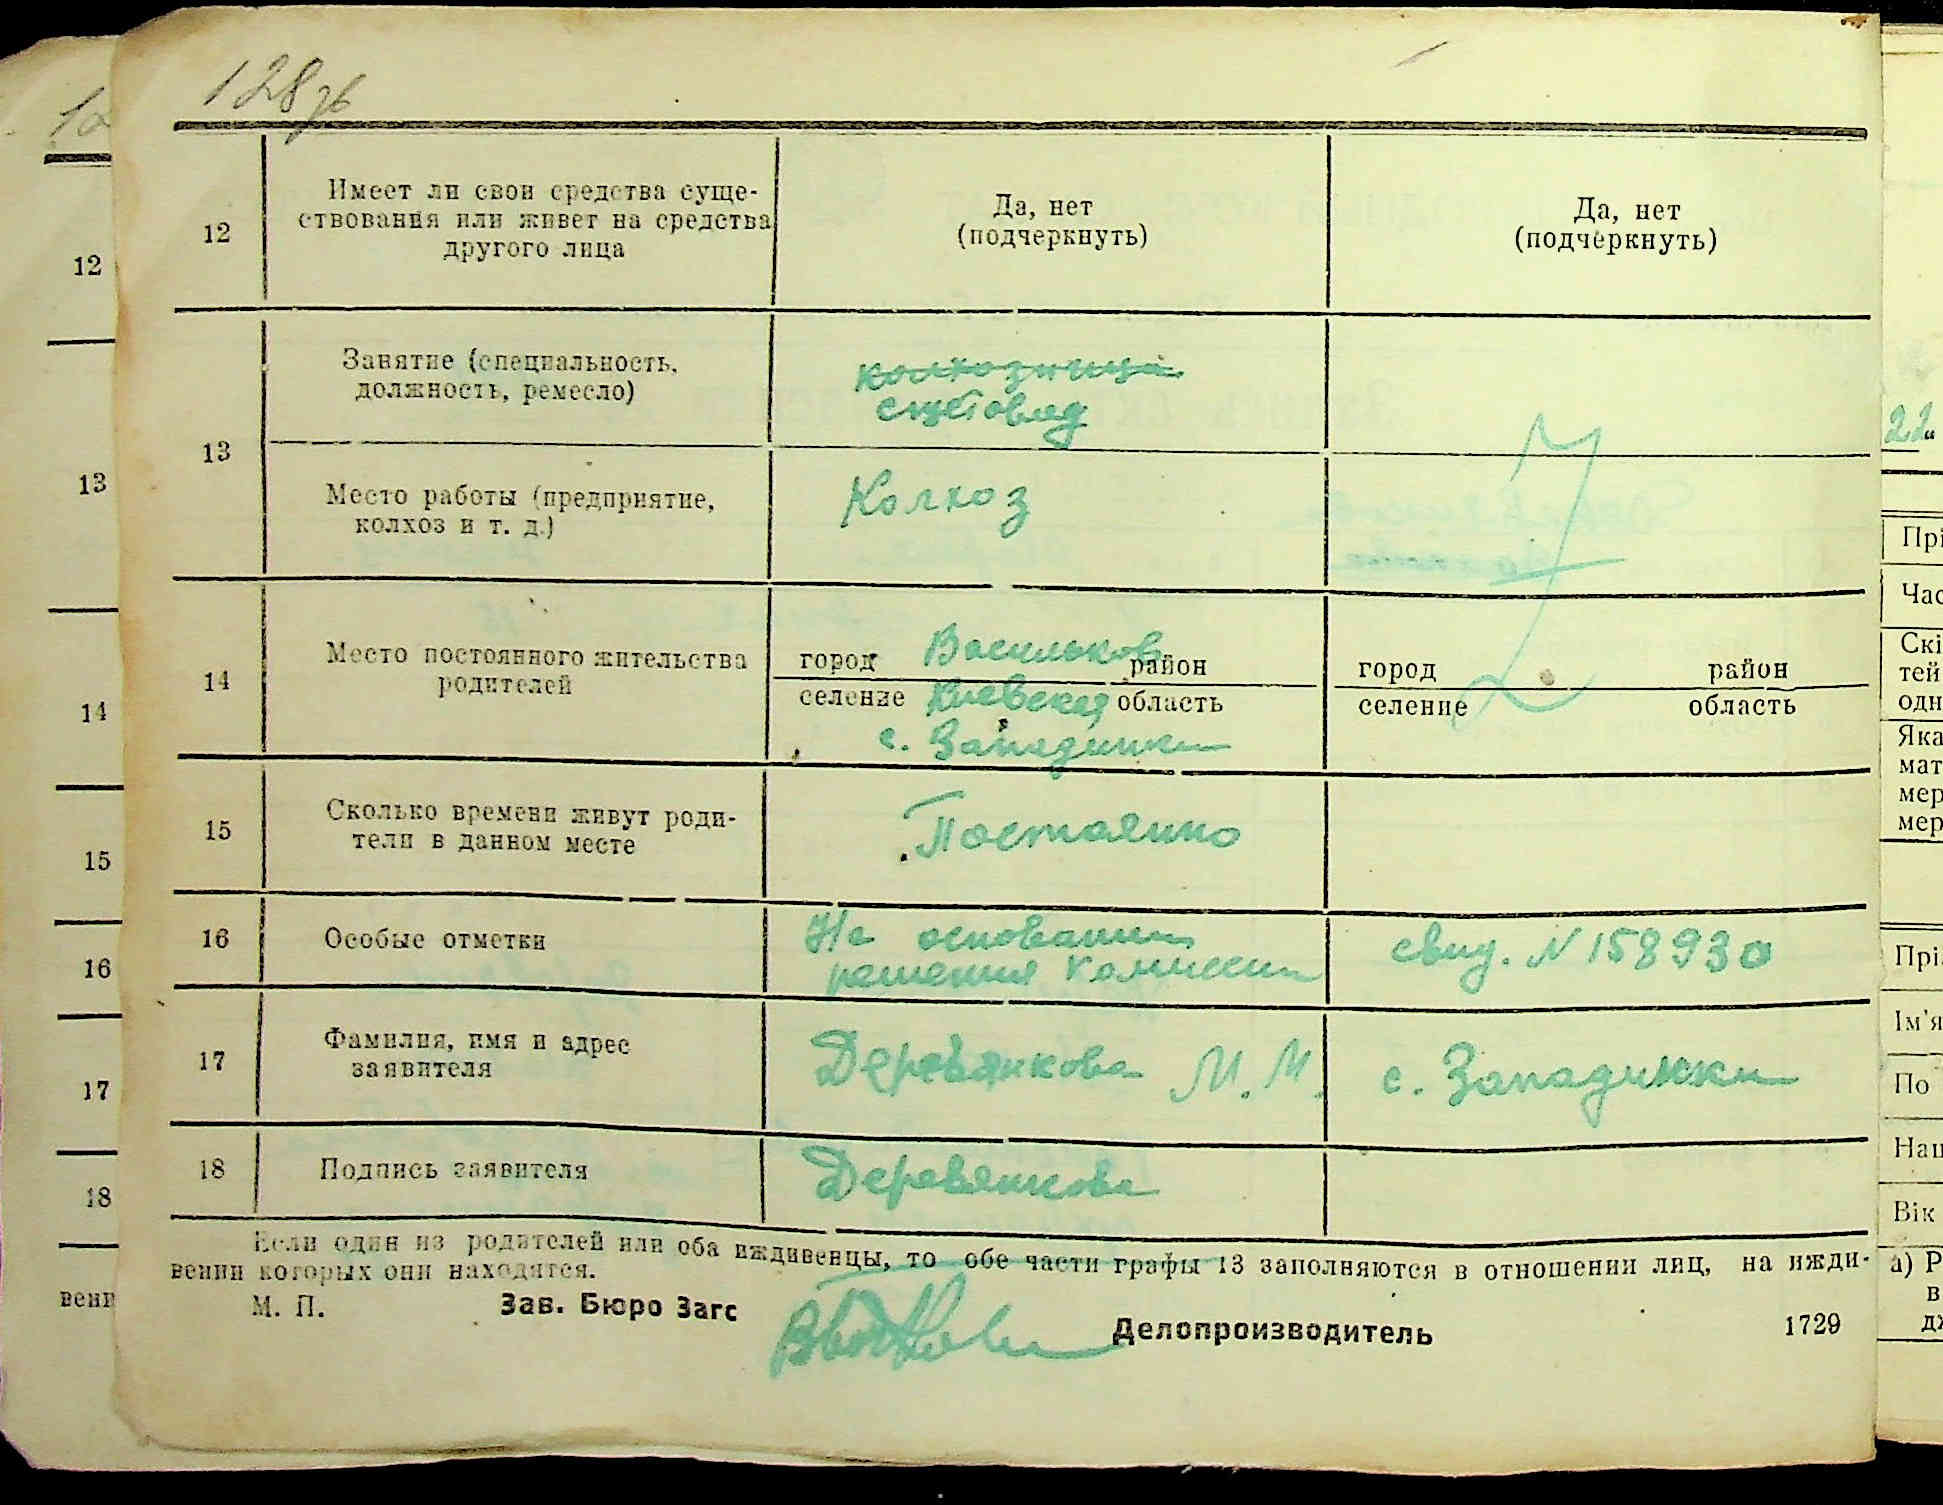 128 зв
12
Имеет ли свои средства суще-
ствования или живет на средства
другого лица
Да, нет
(подчеркнуть)
Да, нет
(подчеркнуть)
13
Занятие (специальность,
должность, ремесло)
колхозница
счетовод
Место работы (предприятие,
колхоз и т. д.)
Колхоз
14
Место постоянного жительства
родителей
город Васильков район
селение Киевская область
с. Западинки
город район
селение область
15
Сколько времени живут роди-
тели в данном месте
Постоянно
16
Особые отметки
На основании
решения комиссии
свид. N 158930
17
Фамилия, имя и адрес
заявителя
Деревянкова М. М.
с. Западинки
18
Подпись заявителя
Деревянкова
Если один из родителей или оба иждивенцы, то обе части графы 13 заполняются в отношении лиц, на ижди-
вении которых они находятся.
М. П.
Зав. Бюро Загс
Делопроизводитель
1729
12
13
14
15
16
17
18
вени
22
Прі
Час
Скі
тей
одн
Яка
мат
мер
мер
Прі
Ім'я
По
Нац
Вік
а) Р
в
дж